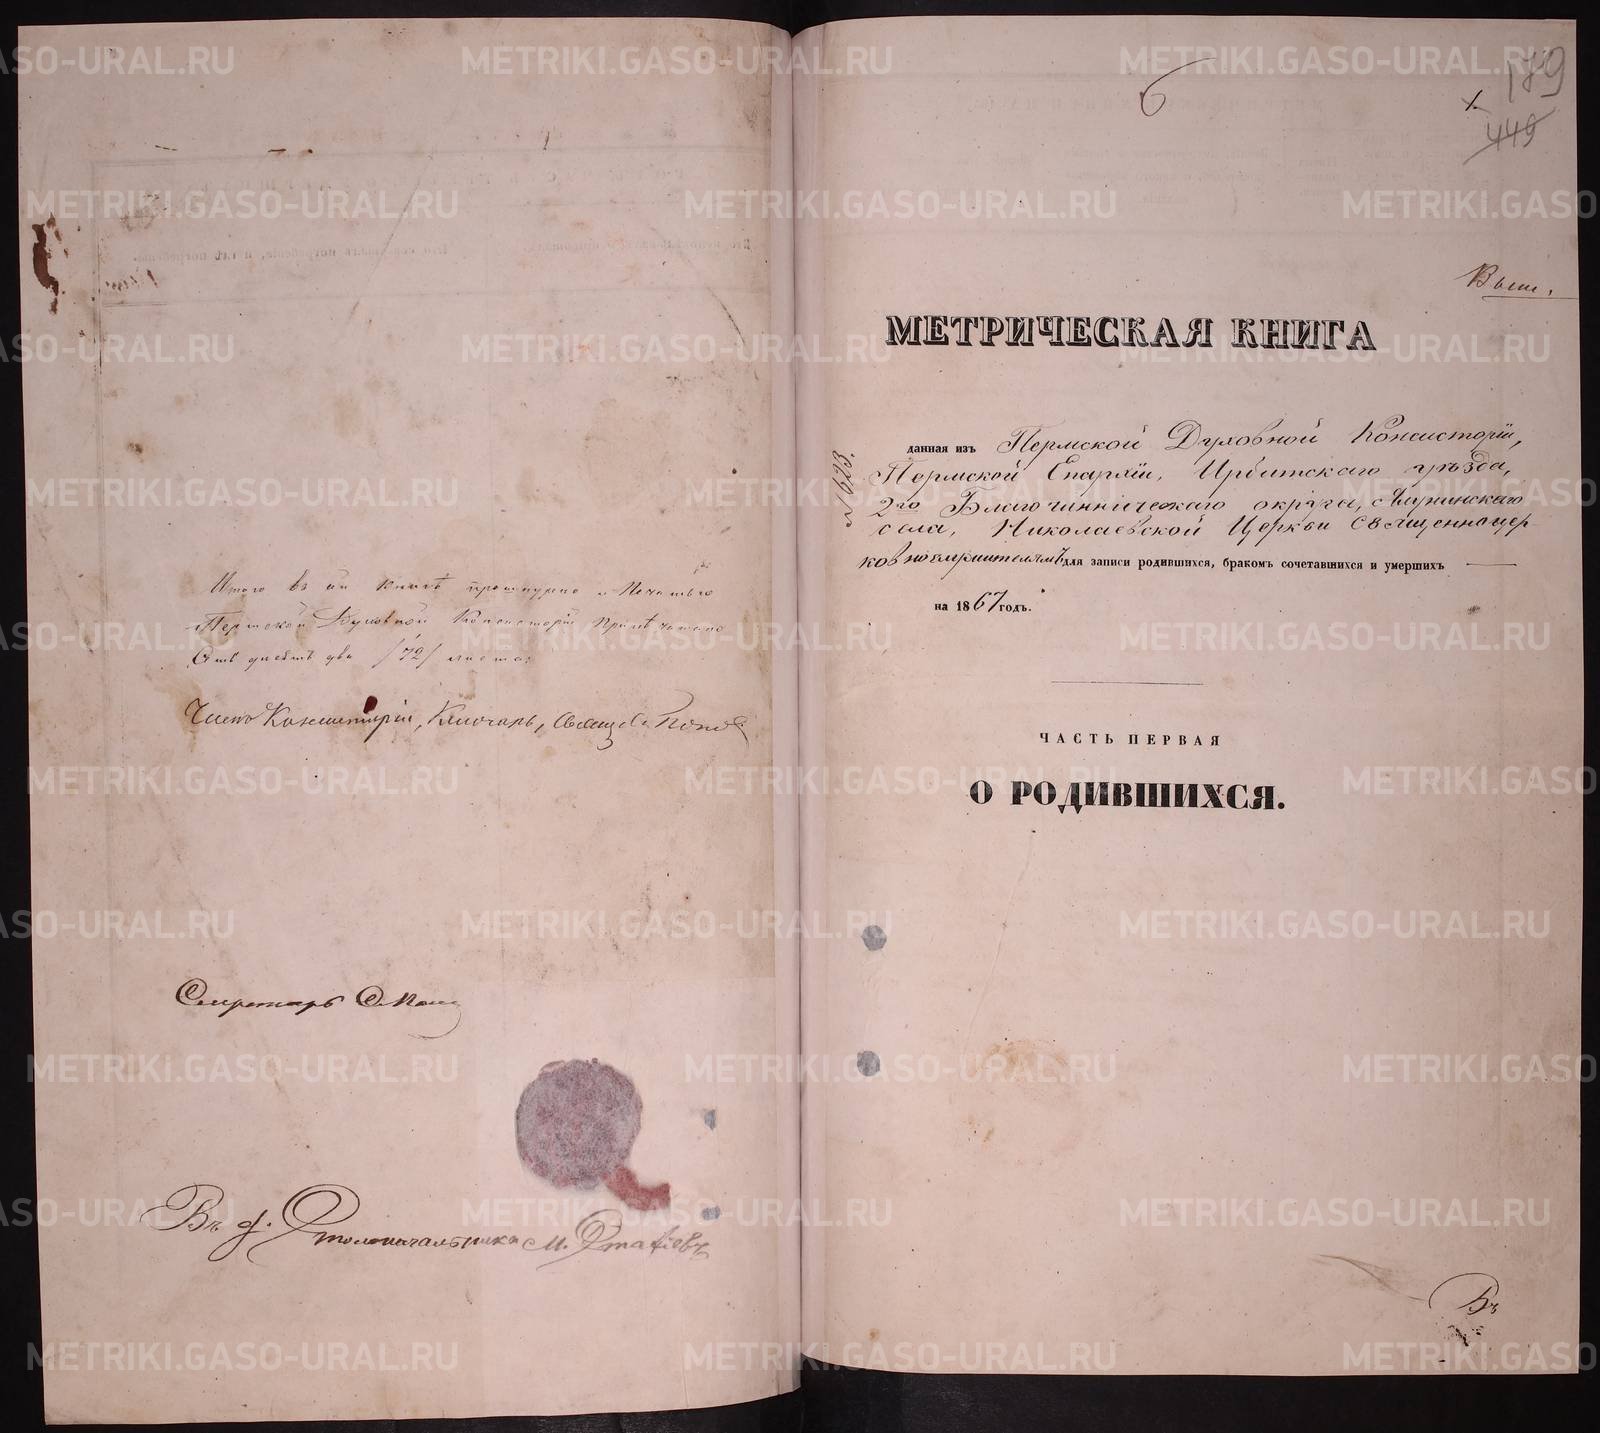 Итого въ сей книгѣ прошнурно и Печатью
Пермской Духовной Консисторіи Припечатано
два /72/ листа.
Членъ Консисторіи, Ключарь, Попов
Секретарь
Въ д. Столоначальника М. Остафіевъ
6
179
1.
449
МЕТРИЧЕСКАЯ КНИГА
№ 623.
данная изъ Пермской Духовной Консисторіи,
Пермской Епархіи, Ирбитскаго уѣзда,
2го Благочинническаго округа,
села, Николаевской Церкви Священноцер
ковнослужителямъ для записи родившихся, бракомъ сочетавшихся и умершихъ
на 1867 годъ.
ЧАСТЬ ПЕРВАЯ
О РОДИВШИХСЯ.
Въ
METRIKI.GASO-URAL.RU